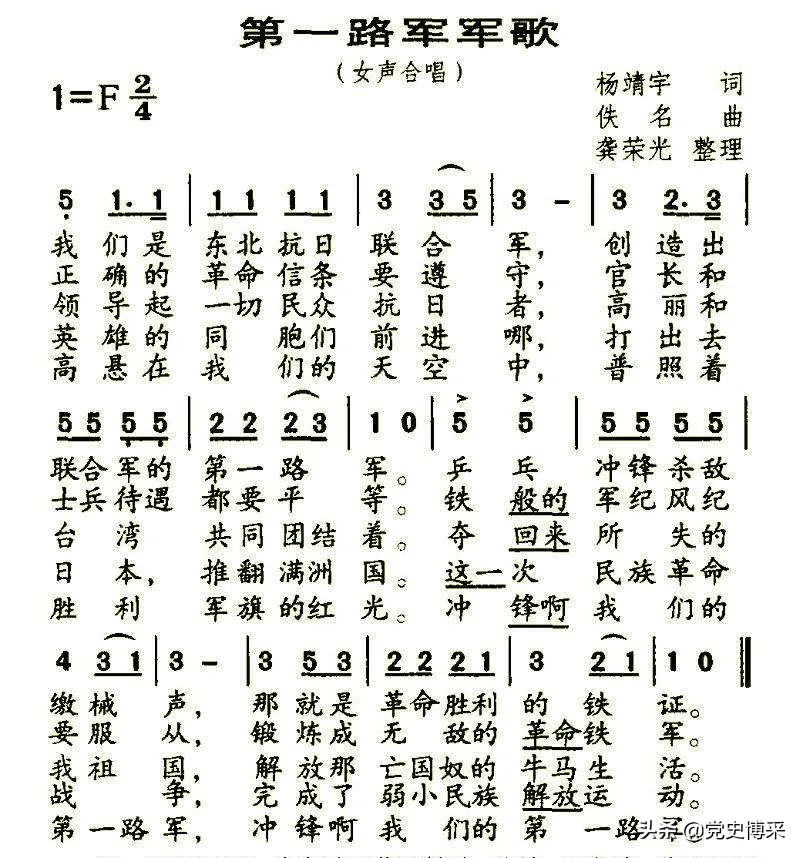 第一路军军歌
（女声合唱）
1=F 2/4
杨靖宇 词
佚名 曲
龚荣光 整理
5 1. 1 | 1 1 1 1 | 3 3 5 | 3 - | 3 2. 3 |
我们是 东北抗日 联合 军，创造出
正确的 革命信条 要遵 守，官长和
领导起 一切民众 抗日 者，高丽和
英雄的 同胞们 前进 哪，打出去
高悬在 我们的 天空 中，普照着
5 5 5 5 | 2 2 2 3 | 1 0 | 5 5 | 5 5 5 5 |
联合军的 第一路 军。乒乓 冲锋杀敌
士兵待遇 都要平 等。铁般的 军纪风纪
台湾 共同团结 着。夺回来 所失的
日本，推翻满洲 国。这一次 民族革命
胜利 军旗的红 光。冲锋啊 我们的
4 3 1 | 3 - | 3 5 3 | 2 2 2 1 | 3 2 1 | 1 0 ‖
缴械 声，那就是 革命胜利 的铁 证。
要服 从，锻炼成 无敌的 革命铁 军。
我祖 国，解放那 亡国奴的 牛马生 活。
战 争，完成了 弱小民族 解放运 动。
第一路 军，冲锋啊 我们的 第一路 军
头条 @党史博采